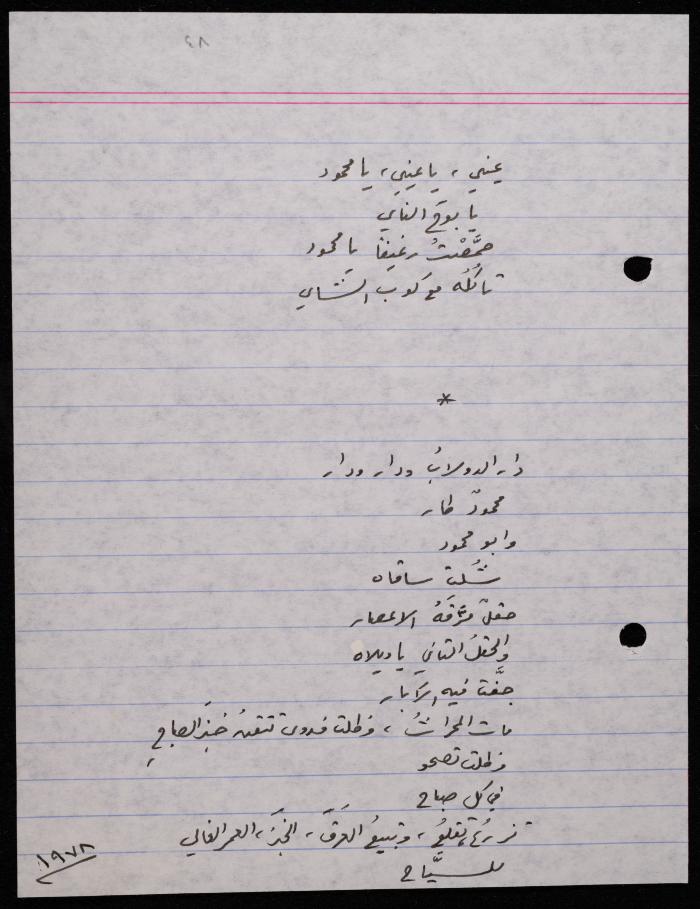 ٤٨
عيني، يا عيني، يا محمود
يا بوحَ الناي
حمَّصْتُ رغيفًا يا محمود
تأكلُه مع كوب الشاي
*
دار الدولابُ ودار ودار
محمودٌ طار
وابو محمود
شُلّت ساقاه
حقلٌ مزَّقَهُ الاعصار
والحقلُ الثاني يا ويلاه
جفَّت فيه الآبار
مات المحراثُ، وظلت فدوى تتقنُ خبزَ الصاجِ
وظلت تصحو
في كل صباح
تزرعُ، تقلعُ، وتبيعُ العرقَ، الخبزَ، العمر الغالي
للسيَّاح
١٩٧٨